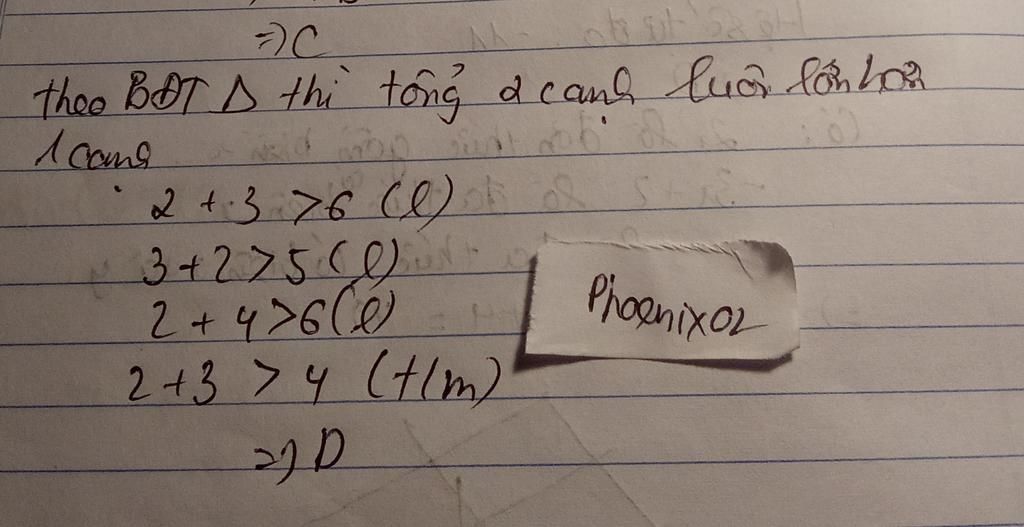 =) C
theo BĐT Δ thì tổng 2 cạnh luôn lớn hơn
1 cạnh
2 + 3 > 6 (l)
3 + 2 > 5 (l)
2 + 4 > 6 (l)
2 + 3 > 4 (t/m)
=) D
Phoenix02